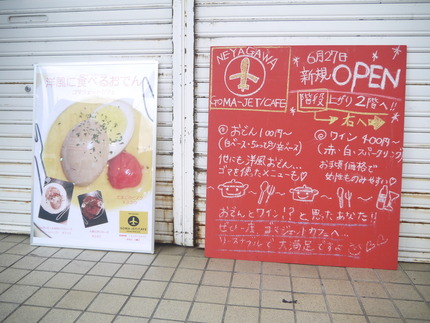 洋風に食べるおでん
GOMA-JET/CAFE
NEYAGAWA
GOMA-JET/CAFE
6月27日
新規OPEN
階段上がり2階へ!!
右へ
おでん100円〜
ワイン400円〜
(赤・白・スパークリング)
他にも洋風おでん…
ゴマを使ったメニューも
お手頃価格で
女性ものみやすい
おでんとワイン!?と思ったあなた!!
ぜひ一度
ゴマジェットカフェへ…
リーズナブルで大満足ですよ